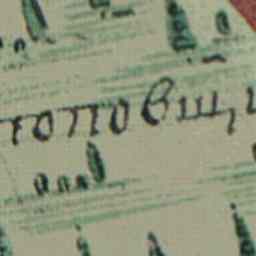 топовщи